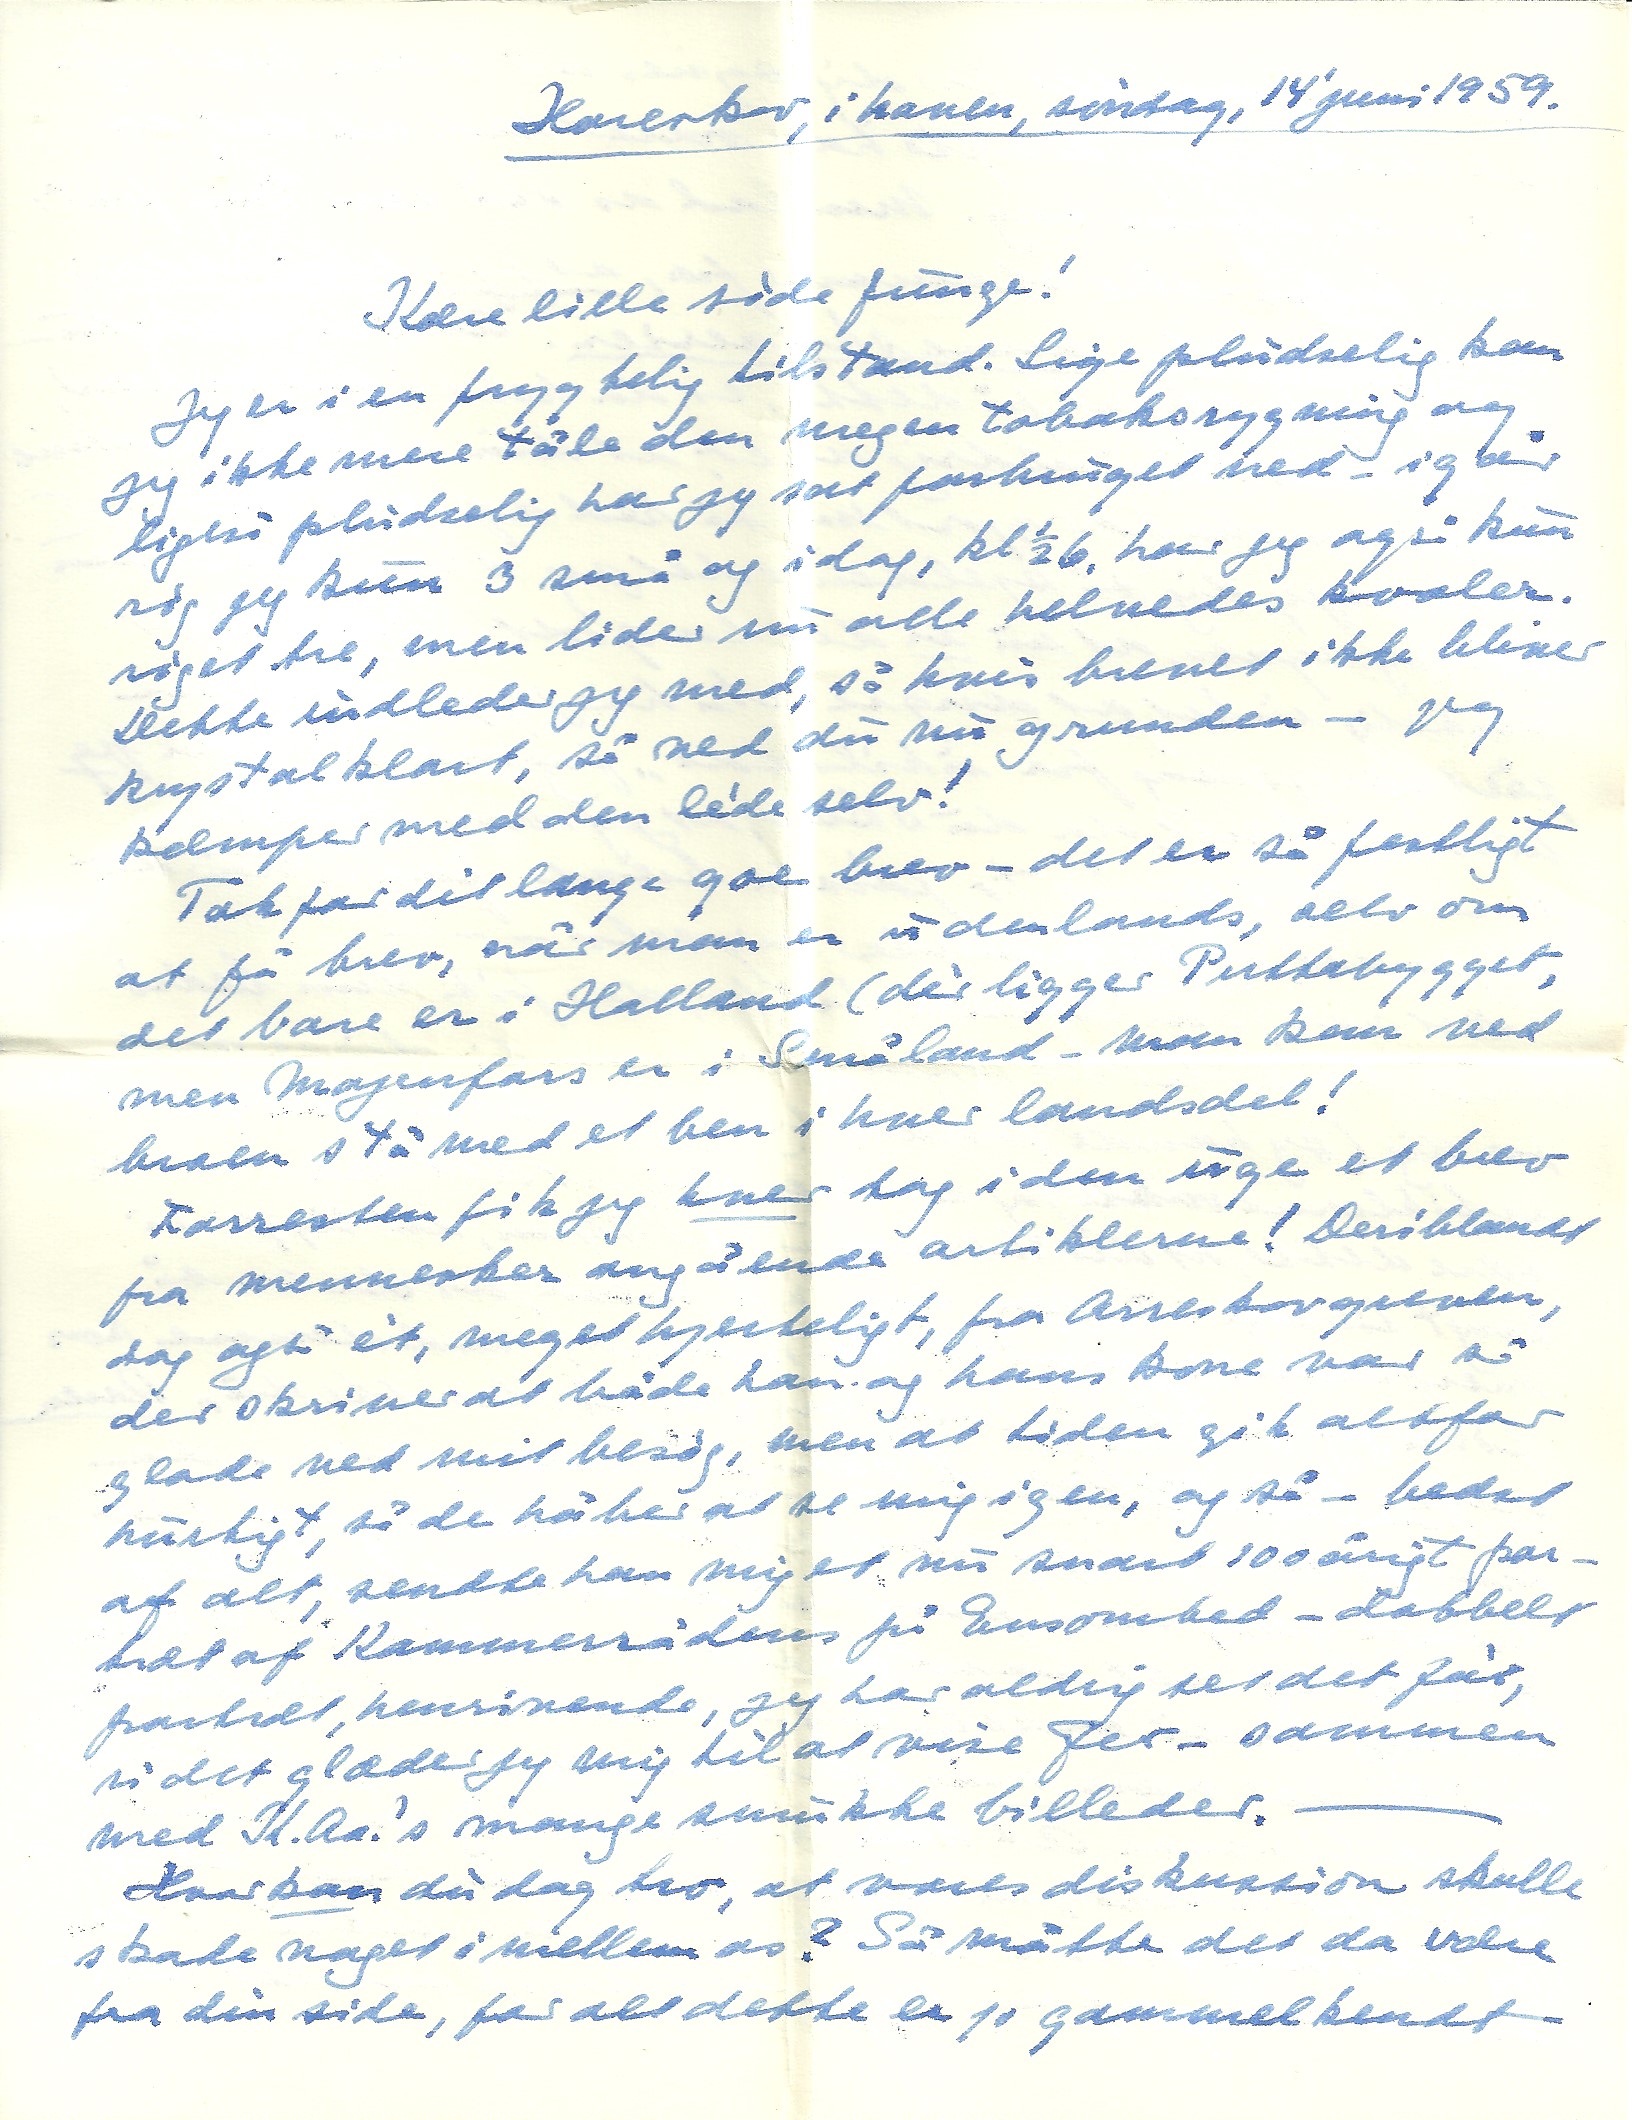 Hareskov, i haven, søndag, 14' juni 1959.
Kære lille søde Junge!
Jeg er i en frygtelig tilstand. Lige pludselig kan
jeg ikke mere tåle den megen tobaksrygning og
ligeså pludselig har jeg sat forbruget ned – igår
røg jeg kun 3 små og idag, kl ½6, har jeg også kun
røget tre, men lider nu alle helvedes kvaler.
Dette indleder jeg med, så hvis brevet ikke bliver
krystalklart, så ved du nu grunden – jeg
kæmper med den léde selv!
Tak for dit lange goe brev – det er så festligt
at få brev, når man er udenlands, selv om
det bare er i Halland (dèr ligger Puttebygget,
men Mogenfars er i Småland – man kan ved
broen stå med et ben i hver landsdel!
Forresten fik jeg hver dag i den uge et brev
fra mennesker angående artiklerne! Deriblandt
dog også ét, meget hjerteligt, fra Arreskovgreven,
der skriver at både han og hans kone var så
glade ved mit besøg, men at tiden gik altfor
hurtigt, så de håber at se mig igen, og så – bedst
af alt, sendte han mig et nu snart 100 årigt por-
træt af Kammerrådens på Ensomhed – dobbelt
portræt, henrivende, jeg har aldrig set det før,
så det glæder jeg mig til at vise Jer – sammen
med K.Aa.'s mange smukke billeder. —
Hvor kan du dog tro, at vores diskussion skulle
skade noget i mellem os? Så måtte det da være
fra din side, for alt dette er jo gammelkendt